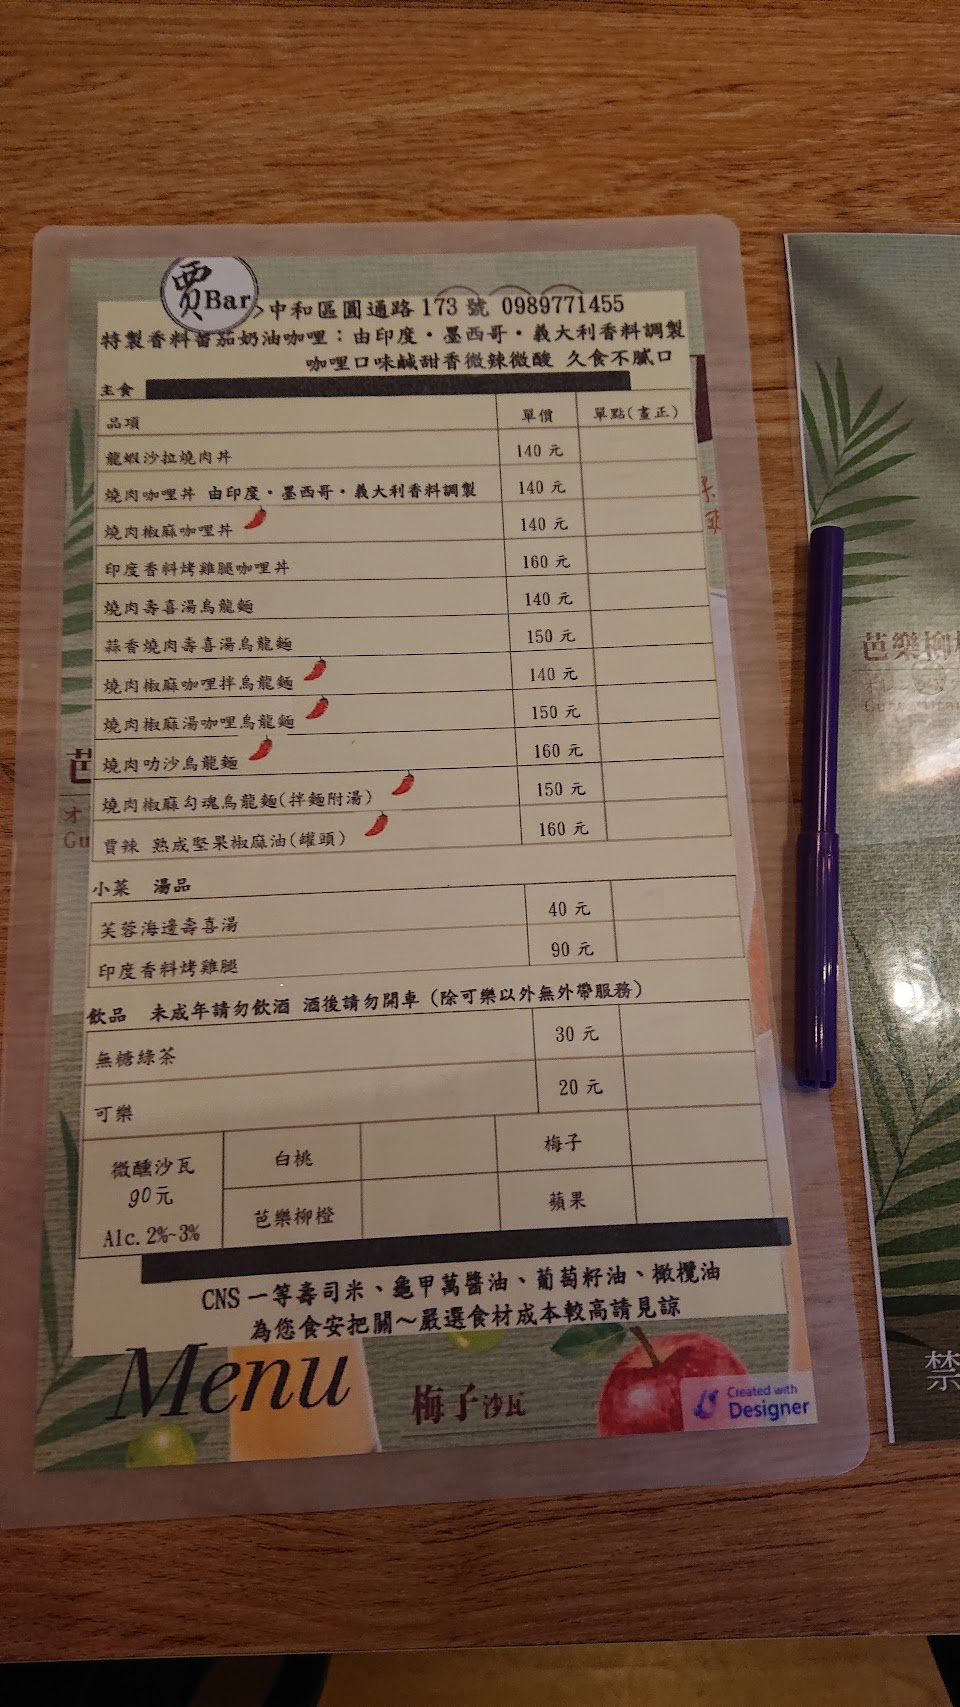 賈Bar
中和區圓通路 173 號 0989771455
特製香料蕃茄奶油咖哩：由印度・墨西哥・義大利香料調製
咖哩口味鹹甜香微辣微酸 久食不膩口
主食
品項 單價 單點(畫正)
龍蝦沙拉燒肉丼 140 元
燒肉咖哩丼 由印度・墨西哥・義大利香料調製 140 元
燒肉椒麻咖哩丼 140 元
印度香料烤雞腿咖哩丼 160 元
燒肉壽喜湯烏龍麵 140 元
蒜香燒肉壽喜湯烏龍麵 150 元
燒肉椒麻咖哩拌烏龍麵 140 元
燒肉椒麻湯咖哩烏龍麵 150 元
燒肉叻沙烏龍麵 160 元
燒肉椒麻勾魂烏龍麵(拌麵附湯) 150 元
賈辣 熟成堅果椒麻油(罐頭) 160 元
小菜 湯品
芙蓉海邊壽喜湯 40 元
印度香料烤雞腿 90 元
飲品 未成年請勿飲酒 酒後請勿開車 (除可樂以外無外帶服務)
無糖綠茶 30 元
可樂 20 元
微醺沙瓦
90元
Alc. 2%~3%
白桃 梅子
芭樂柳橙 蘋果
CNS 一等壽司米、龜甲萬醬油、葡萄籽油、橄欖油
為您食安把關～嚴選食材成本較高請見諒
Menu
梅子沙瓦
Created with
Designer
芭
Gu
芭樂柳
禁